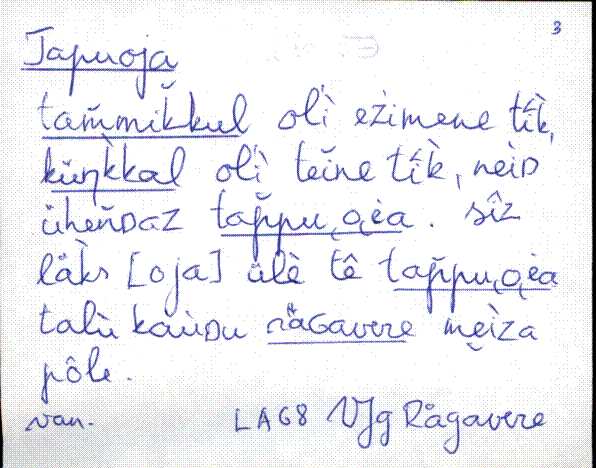 3
Tapuoja
tam̆mik̆kul oĺì eżimene tîk,
küŋ̀kkal oĺì teĭne tîk, neiD
üheǹDaz tap̆pu͜ o̭èa. sîz
läks [oja] ülè tê tap̆pu͜ o̭èa
talù kaùDu räGavere me̬ìza
pôle.
van. LA68 VJg Rägavere